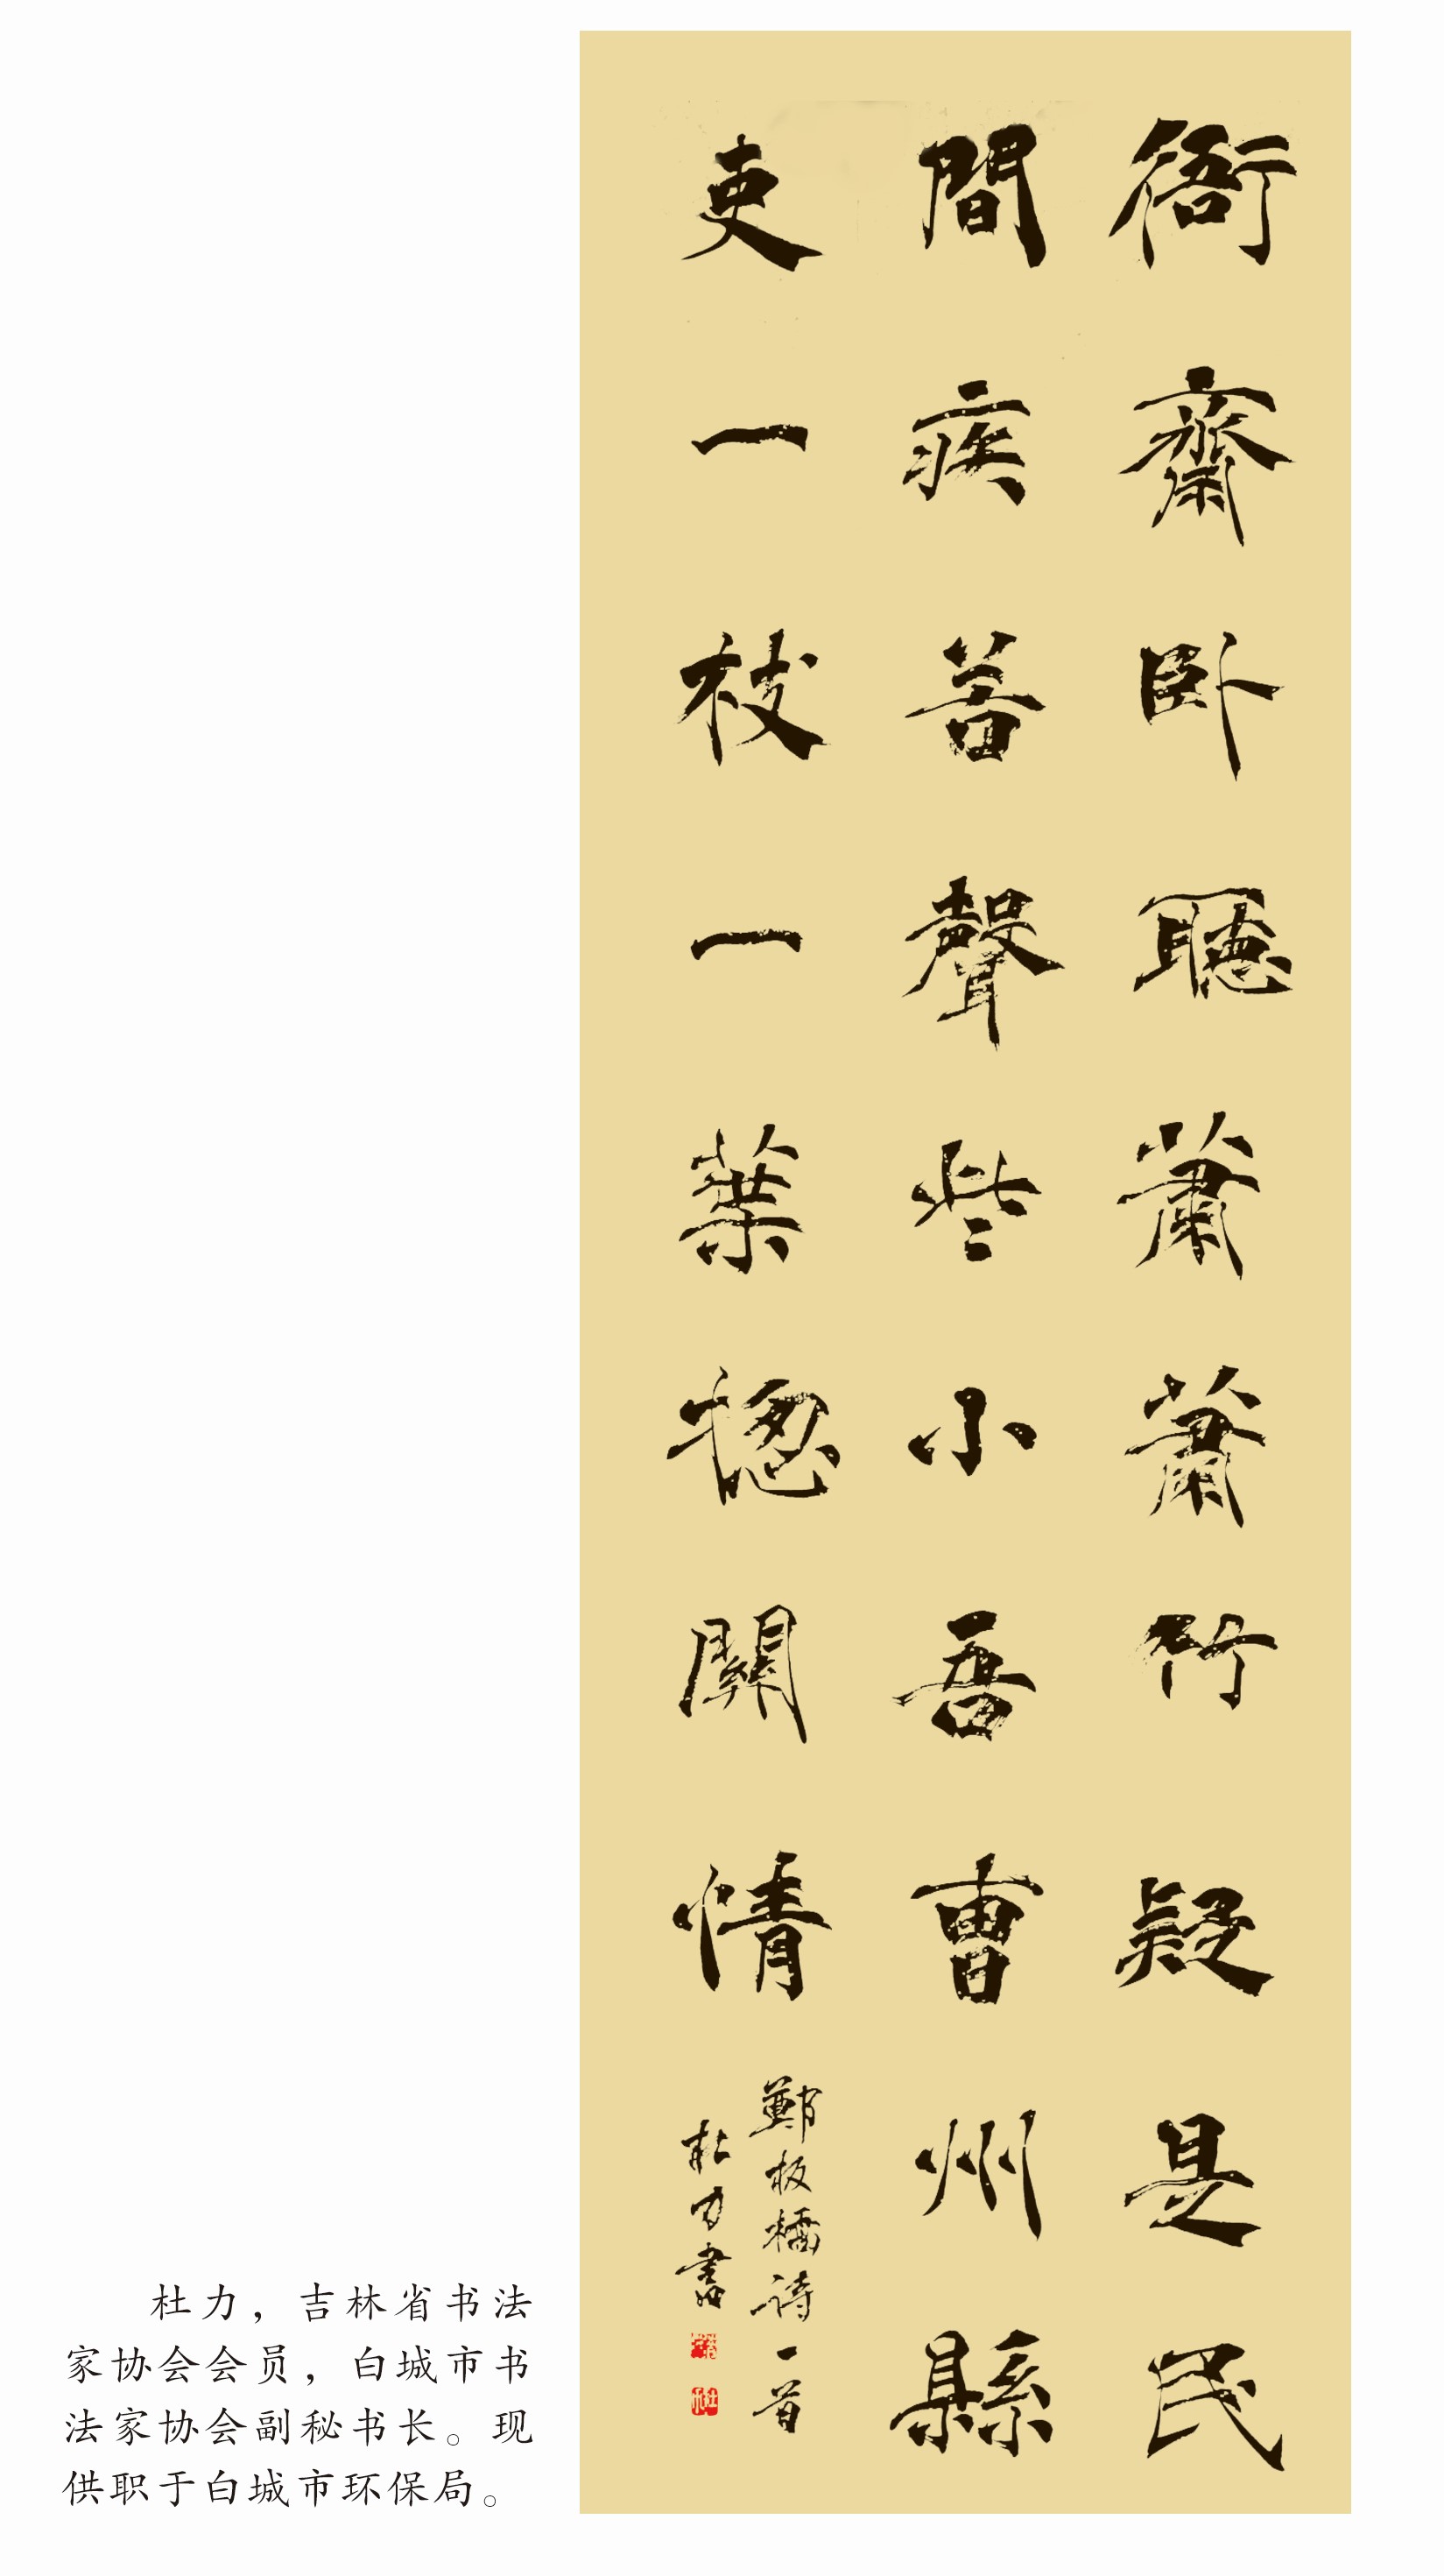 衙齋卧聽蕭蕭竹疑是民
間疾苦聲些小吾曹州縣
吏一枝一葉揔關情
鄭板橋詩一首
杜力書
杜力，吉林省书法
家协会会员，白城市书
法家协会副秘书长。现
供职于白城市环保局。